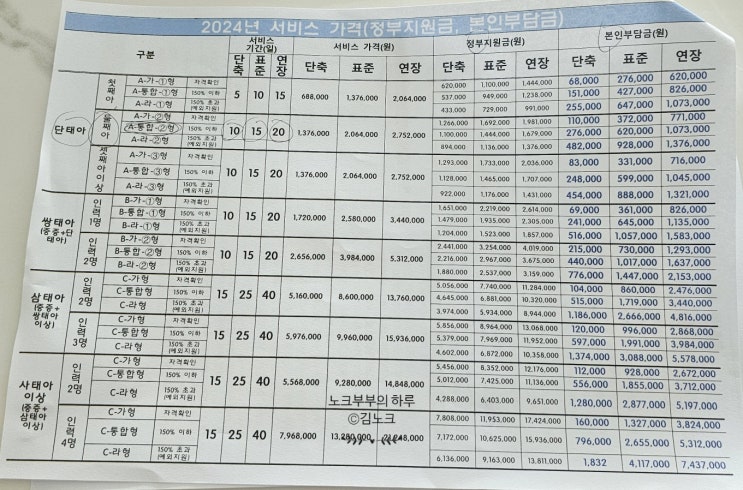 2024년 서비스 가격(정부지원금, 본인부담금)
구분 서비스 기간(일) 서비스 가격(원) 정부지원금(원) 본인부담금(원)
단축 표준 연장 단축 표준 연장 단축 표준 연장 단축 표준 연장
단태아 첫째아 A-가-①형 자격확인 5 10 15 688,000 1,376,000 2,064,000 620,000 1,100,000 1,444,000 68,000 276,000 620,000
A-통합-①형 150% 이하 537,000 949,000 1,238,000 151,000 427,000 826,000
A-라-①형 150% 초과 (예외지원) 433,000 729,000 991,000 255,000 647,000 1,073,000
둘째아 A-가-②형 자격확인 10 15 20 1,376,000 2,064,000 2,752,000 1,266,000 1,692,000 1,981,000 110,000 372,000 771,000
A-통합-②형 150% 이하 1,100,000 1,444,000 1,679,000 276,000 620,000 1,073,000
A-라-②형 150% 초과 (예외지원) 894,000 1,136,000 1,376,000 482,000 928,000 1,376,000
셋째아 이상 A-가-③형 자격확인 10 15 20 1,376,000 2,064,000 2,752,000 1,293,000 1,733,000 2,036,000 83,000 331,000 716,000
A-통합-③형 150% 이하 1,128,000 1,465,000 1,707,000 248,000 599,000 1,045,000
A-라-③형 150% 초과 (예외지원) 922,000 1,176,000 1,431,000 454,000 888,000 1,321,000
쌍태아 (중증+단태아) 인력 1명 B-가-①형 자격확인 10 15 20 1,720,000 2,580,000 3,440,000 1,651,000 2,219,000 2,614,000 69,000 361,000 826,000
B-통합-①형 150% 이하 1,479,000 1,935,000 2,305,000 241,000 645,000 1,135,000
B-라-①형 150% 초과 (예외지원) 1,204,000 1,523,000 1,857,000 516,000 1,057,000 1,583,000
인력 2명 B-가-②형 자격확인 10 15 20 2,656,000 3,984,000 5,312,000 2,441,000 3,254,000 4,019,000 215,000 730,000 1,293,000
B-통합-②형 150% 이하 2,216,000 2,967,000 3,675,000 440,000 1,017,000 1,637,000
B-라-②형 150% 초과 (예외지원) 1,880,000 2,537,000 3,159,000 776,000 1,447,000 2,153,000
삼태아 (중증+쌍태아 이상) 인력 2명 C-가형 자격확인 15 25 40 5,160,000 8,600,000 13,760,000 5,056,000 7,740,000 11,284,000 104,000 860,000 2,476,000
C-통합형 150% 이하 4,645,000 6,881,000 10,320,000 515,000 1,719,000 3,440,000
C-라형 150% 초과 (예외지원) 3,974,000 5,934,000 8,944,000 1,186,000 2,666,000 4,816,000
인력 3명 C-가형 자격확인 15 25 40 5,976,000 9,960,000 15,936,000 5,856,000 8,964,000 13,068,000 120,000 996,000 2,868,000
C-통합형 150% 이하 5,379,000 7,969,000 11,952,000 597,000 1,991,000 3,984,000
C-라형 150% 초과 (예외지원) 4,602,000 6,872,000 10,358,000 1,374,000 3,088,000 5,578,000
사태아 이상 (중증+삼태아 이상) 인력 2명 C-가형 자격확인 15 25 40 5,568,000 9,280,000 14,848,000 5,456,000 8,352,000 12,176,000 112,000 928,000 2,672,000
C-통합형 150% 이하 5,012,000 7,425,000 11,136,000 556,000 1,855,000 3,712,000
C-라형 150% 초과 (예외지원) 4,288,000 6,403,000 9,651,000 1,280,000 2,877,000 5,197,000
인력 4명 C-가형 자격확인 15 25 40 7,968,000 13,280,000 21,248,000 7,808,000 11,953,000 17,424,000 160,000 1,327,000 3,824,000
C-통합형 150% 이하 7,172,000 10,625,000 15,936,000 796,000 2,655,000 5,312,000
C-라형 150% 초과 (예외지원) 6,136,000 9,163,000 13,811,000 1,832 4,117,000 7,437,000
노크부부의 하루
©김노크